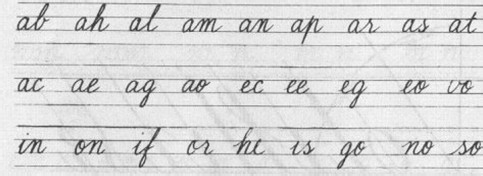 ab ah al am an ap ar as at
ac ae ag ao ec ee eg eo vo
in on if or he is go no so